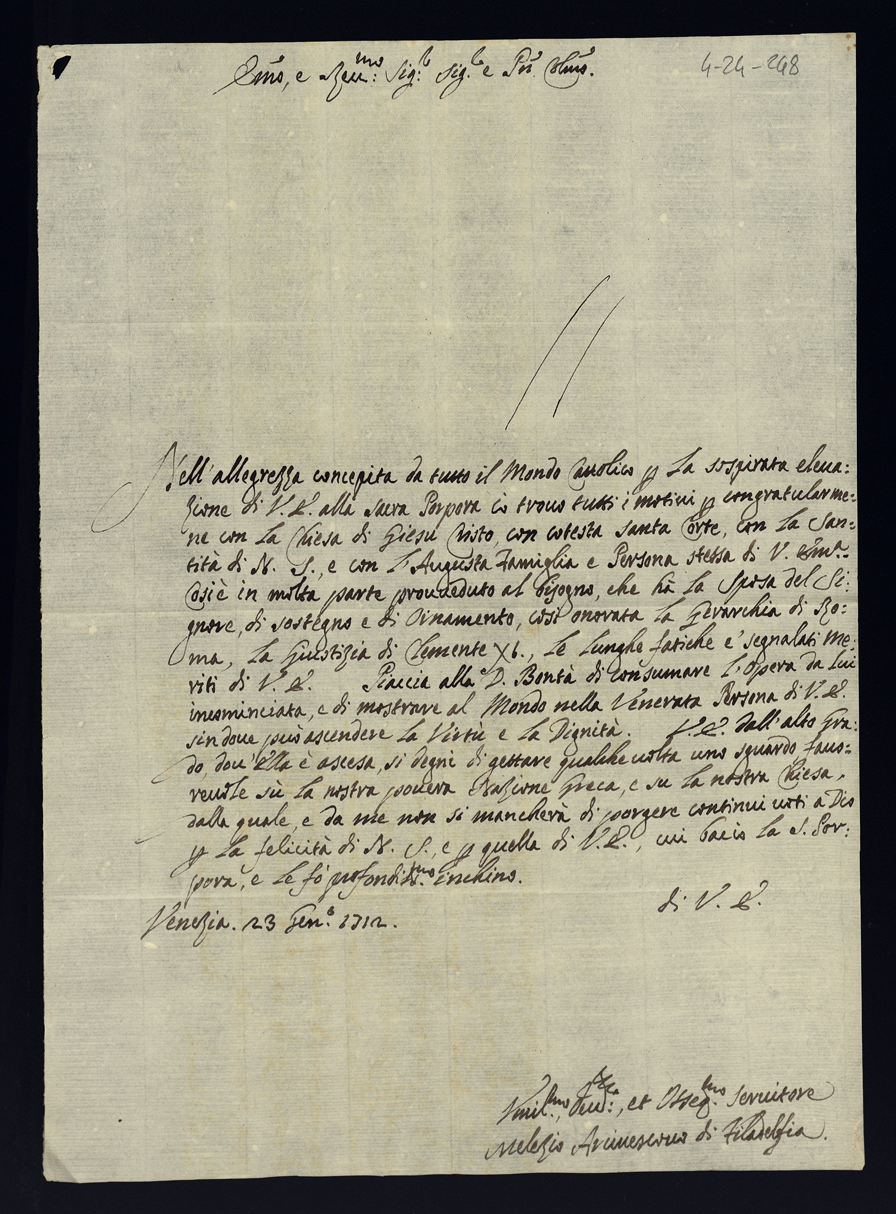 Em̃o, e Reu:mo Sig:r Sig.r e Pñ Colm̃o.
4-24-248
Nell'allegrezza concepita da tutto il Mondo Cattolico p La sospirata eleua:
zione di V. E. alla sacra Porpora io trouo tutti i motiui p congratularme:
ne con La Chiesa di Giesu Cristo, con cotesta santa Corte, con La San:
tità di N. S., e con l'Augusta Famiglia e Persona stessa di V. Em.a
Così è in molta parte proueduto al bisogno, che hà La Sposa del Si:
gnore, di sostegno e di Ornamento, così onorata La Gerarchia di Ro:
ma, La Giustizia di Clemente XI., Le Lunghe fatiche e' segnalati me:
riti di V. E. Piaccia alla D. Bontà di consumare l'Opera da Lui
incominciata, e di mostrare al Mondo nella Venerata Persona di V. E.
sin doue può ascendere La Virtù e La Dignità. V. E. dall'alto Gra:
do, dou'Ella è ascesa, si degni di gettare qualche uolta uno sguardo fauo:
reuole sù La nostra pouera Nazione Greca, e su La nostra Chiesa,
dalla quale, e da me non si mancherà di porgere continui uoti à Dio
p La felicità di N. S., e p quella di V. E., cui bacio La S. Por:
pora, e Le fò profondiss.mo inchino.
di V. E.
Venezia. 23 Gen.o 1712.
Vmil.mo, Deu:mo, et Osseq.mo Seruitore
Melezio Arciuescouo di Filadelfia.